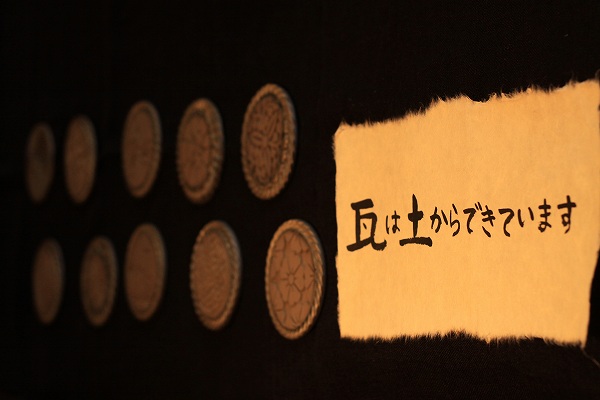 瓦は土からできています